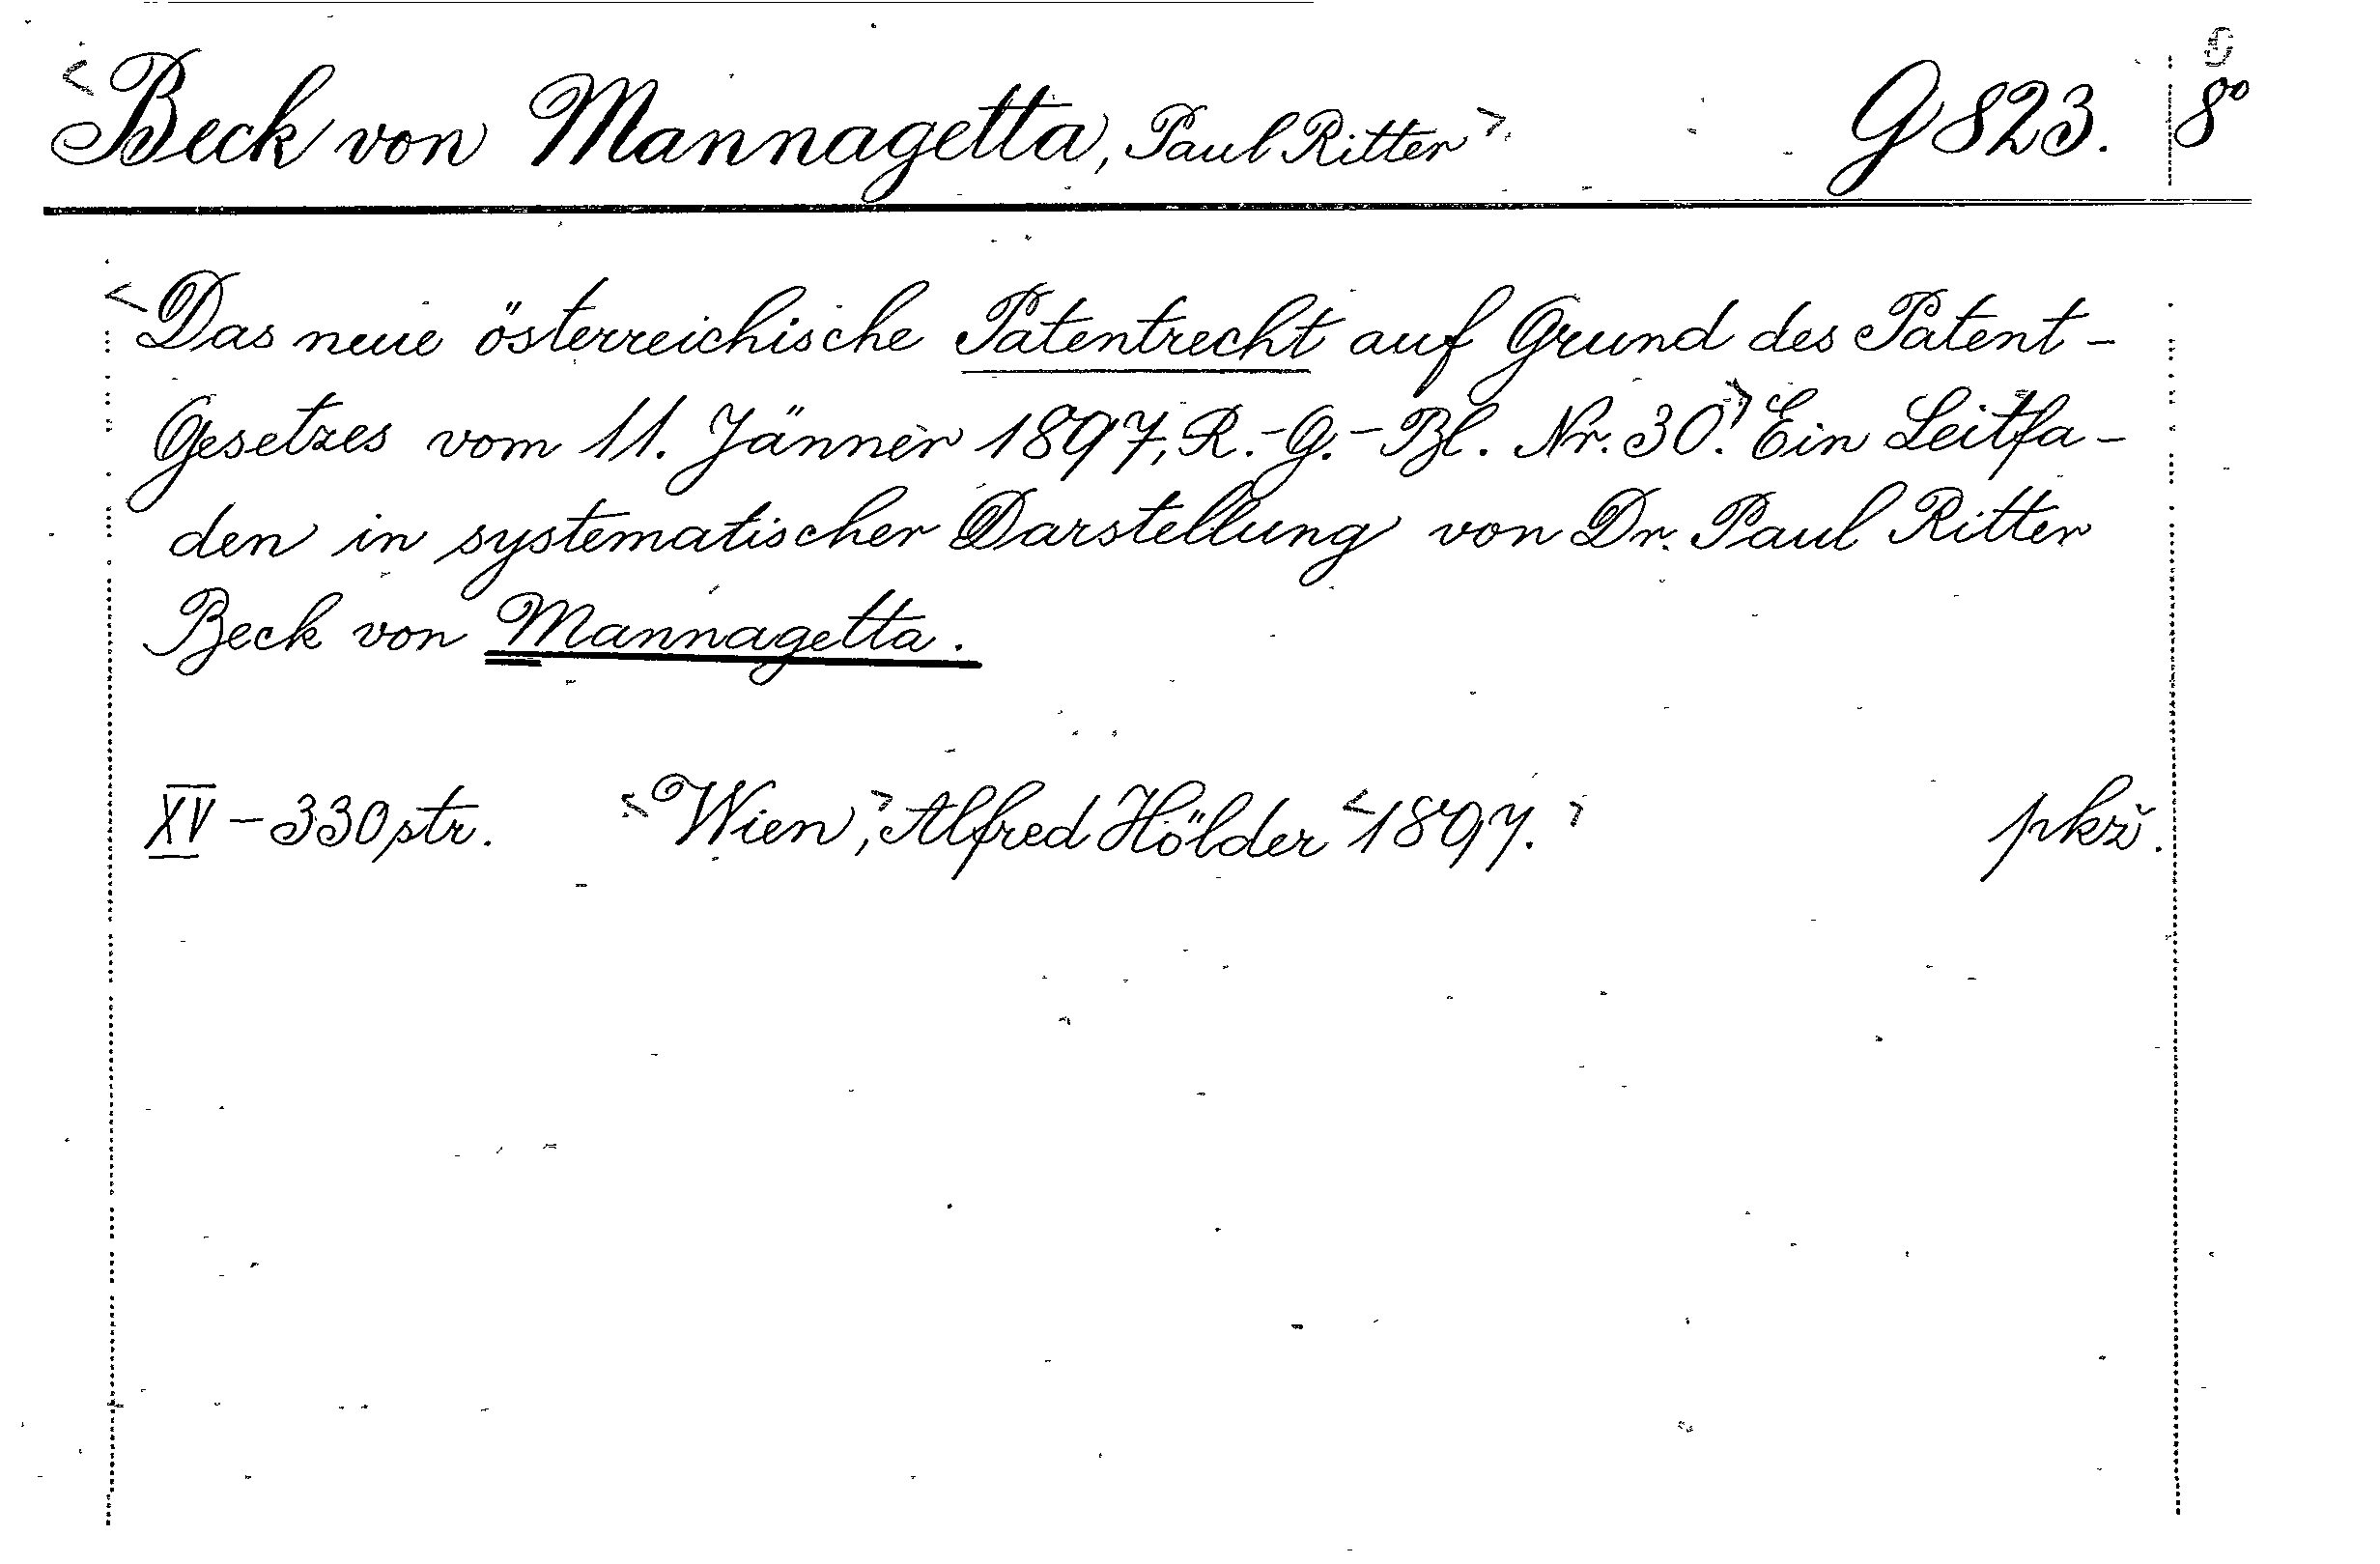 <Beck von Mannagetta, Paul Ritter> G 823. 8°
<Das neue österreichische Patentrecht auf Grund des Patent-
Gesetzes vom 11. Jänner 1897, R.-G.-Bl. Nr. 30.> Ein Leitfa-
den in systematischer Darstellung von Dr. Paul Ritter
Beck von Mannagetta.
XV - 330 str. <Wien,> Alfred Hölder <1897.> pkrž.